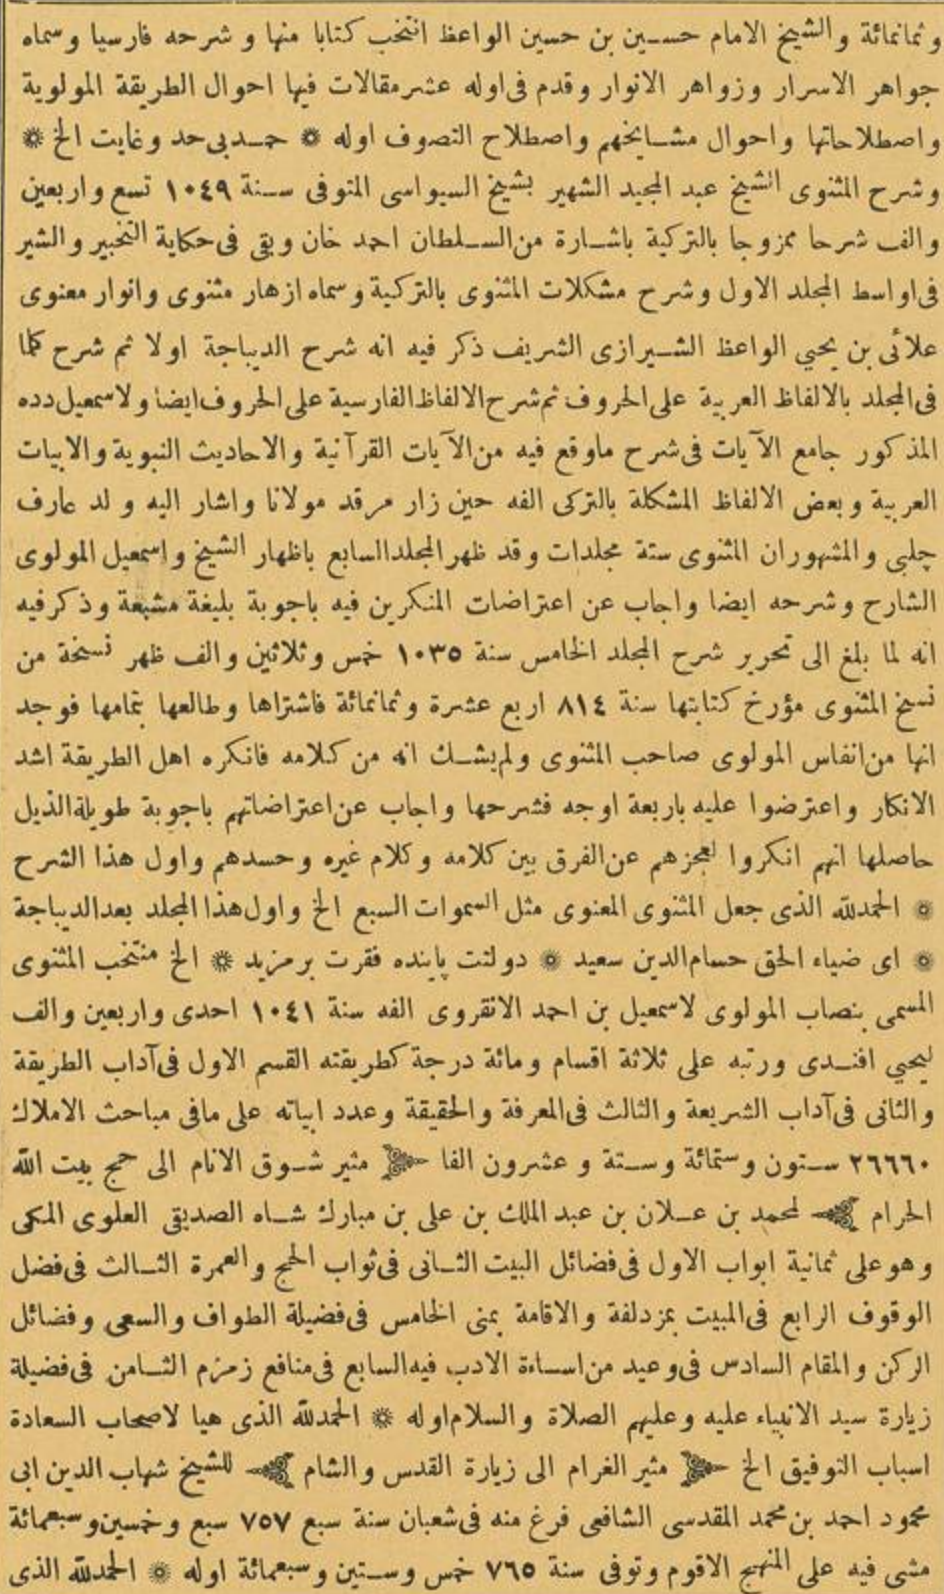 وثمانمائة والشيخ الامام حسين بن حسين الواعظ انتخب كتابا منها وشرحه فارسيا وسماه
جواهر الاسرار وزواهر الانوار وقدم فى اوله عشر مقالات فيها احوال الطريقة المولوية
واصطلاحاتها واحوال مشايخهم واصطلاح التصوف اوله * حمد بى حد وغايت الخ *
وشرح المثنوى الشيخ عبد المجيد الشهير بشيخ السيواسى المتوفى سنة ١٠٤٩ تسع واربعين
والف شرحا ممزوجا بالتركية باشارة من السلطان احمد خان وبقى فى حكاية النخبير والشير
فى اواسط المجلد الاول وشرح مشكلات المثنوى بالتركية وسماه ازهار مثنوى وانوار معنوى
علائى بن يحيي الواعظ الشيرازى الشريف ذكر فيه انه شرح الديباجة اولا ثم شرح كلما
فى المجلد بالالفاظ العربية على الحروف ثم شرح الالفاظ الفارسية على الحروف ايضا ولاسمعيل دده
المذكور جامع الآيات فى شرح ماوقع فيه من الآيات القرآنية والاحاديث النبوية والابيات
العربية وبعض الالفاظ المشكلة بالتركى الفه حين زار مرقد مولانا واشار اليه ولد عارف
چلبى والمشهور ان المثنوى ستة مجلدات وقد ظهر المجلد السابع باظهار الشيخ واسمعيل المولوى
الشارح وشرحه ايضا واجاب عن اعتراضات المنكرين فيه باجوبة بليغة مشبعة وذكر فيه
انه لما بلغ الى تحرير شرح المجلد الخامس سنة ١٠٣٥ خمس وثلاثين والف ظهر نسخة من
نسخ المثنوى مؤرخ كتابتها سنة ٨١٤ اربع عشرة وثمانمائة فاشتراها وطالعها بتمامها فوجد
انها من انفاس المولوى صاحب المثنوى ولم يشك انه من كلامه فانكره اهل الطريقة اشد
الانكار واعترضوا عليه باربعة اوجه فشرحها واجاب عن اعتراضاتهم باجوبة طويلة الذيل
حاصلها انهم انكروا لعجزهم عن الفرق بين كلامه وكلام غيره وحسدهم واول هذا الشرح
* الحمدلله الذى جعل المثنوى المعنوى مثل السموات السبع الخ واول هذا المجلد بعد الديباجة
* اى ضياء الحق حسام الدين سعيد * دولتت پاينده فقرت بر مزيد * الخ منتخب المثنوى
المسمى بنصاب المولوى لاسمعيل بن احمد الانقروى الفه سنة ١٠٤١ احدى واربعين والف
ليحيي افندى ورتبه على ثلاثة اقسام ومائة درجة كطريقته القسم الاول فى آداب الطريقة
والثانى فى آداب الشريعة والثالث فى المعرفة والحقيقة وعدد ابياته على مافى مباحث الاملاك
٢٦٦٦٠ ستون وستمائة وستة وعشرون الفا ﴿ مثير شوق الانام الى حج بيت الله
الحرام ﴾ لمحمد بن علان بن عبد الملك بن على بن مبارك شاه الصديقى العلوى المكى
وهو على ثمانية ابواب الاول فى فضائل البيت الثانى فى ثواب الحج والعمرة الثالث فى فضل
الوقوف الرابع فى المبيت بمزدلفة والاقامة بمنى الخامس فى فضيلة الطواف والسعى وفضائل
الركن والمقام السادس فى وعيد من اساءة الادب فيه السابع فى منافع زمزم الثامن فى فضيلة
زيارة سيد الانبياء عليه وعليهم الصلاة والسلام اوله * الحمدلله الذى هيا لاصحاب السعادة
اسباب التوفيق الخ ﴿ مثير الغرام الى زيارة القدس والشام ﴾ للشيخ شهاب الدين ابى
محمود احمد بن محمد المقدسى الشافعى فرغ منه فى شعبان سنة سبع ٧٥٧ سبع وخمسين وسبعمائة
مشى فيه على المنهج الاقوم وتوفى سنة ٧٦٥ خمس وستين وسبعمائة اوله * الحمدلله الذى